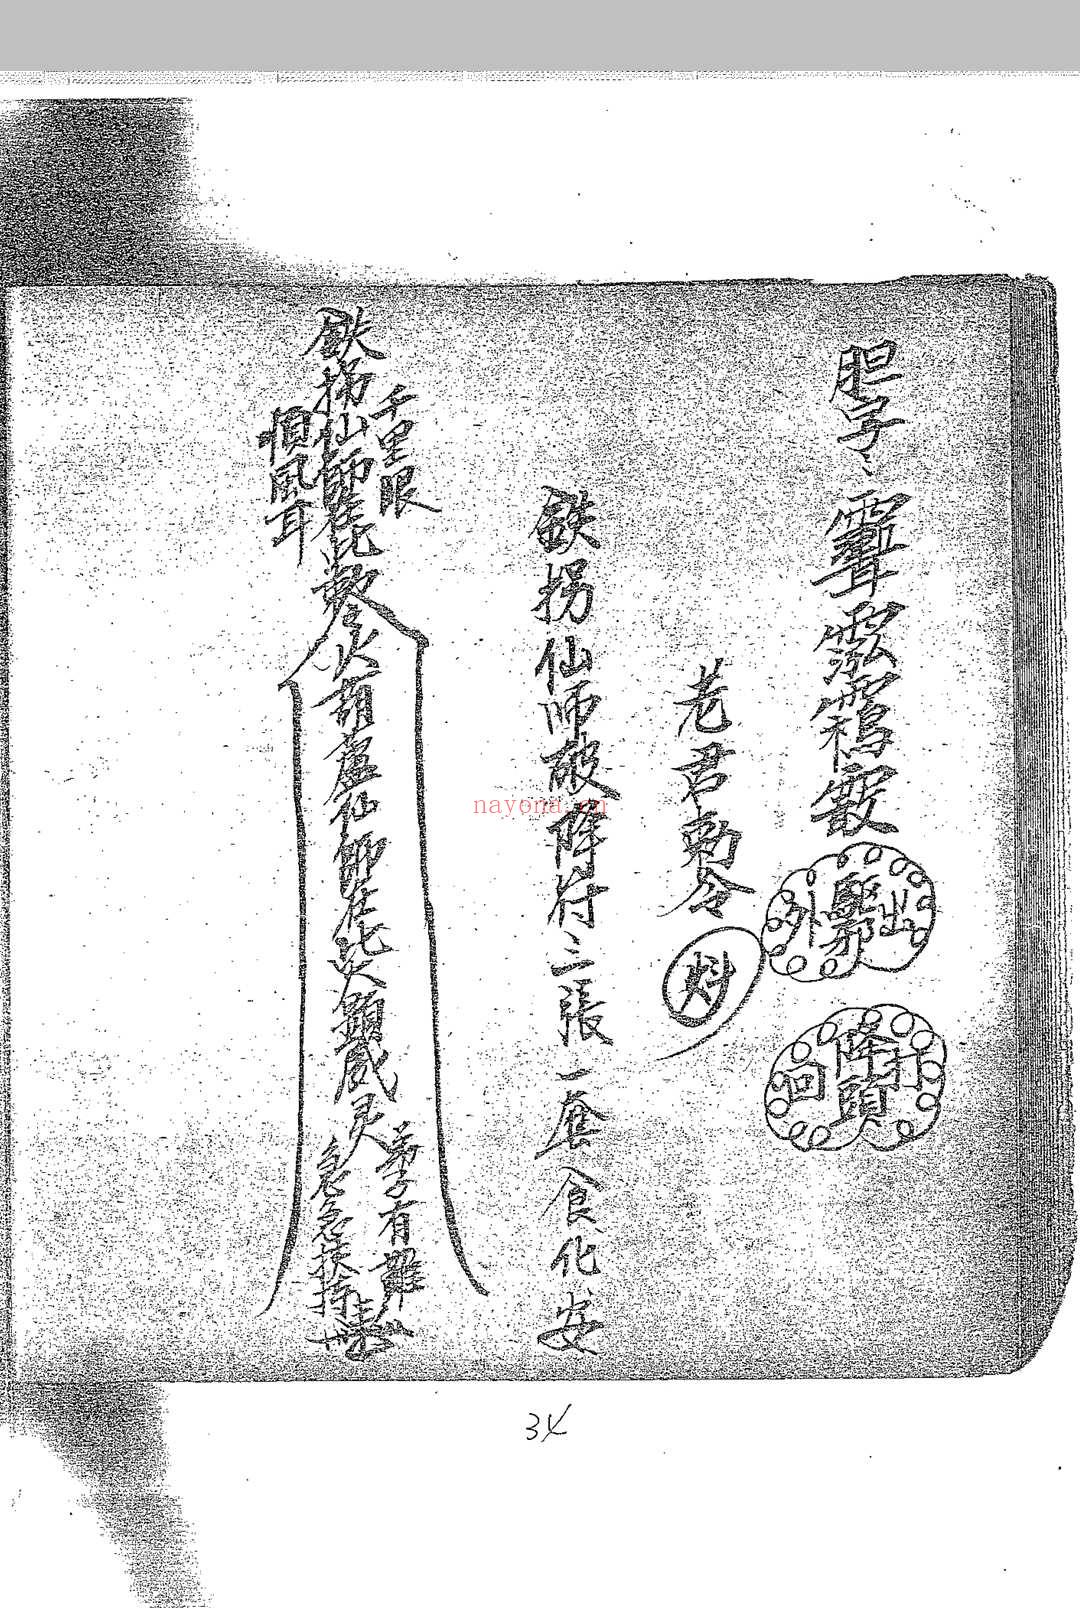 胆字
外驅邪出
回降頭打
老君勅令
鉄拐仙師破降符三張一套食化安
千里眼
鉄拐仙師在此
火葫蘆仙師在此火顯威灵
順風耳
弟子有難
急急扶持
nayona.cn
34